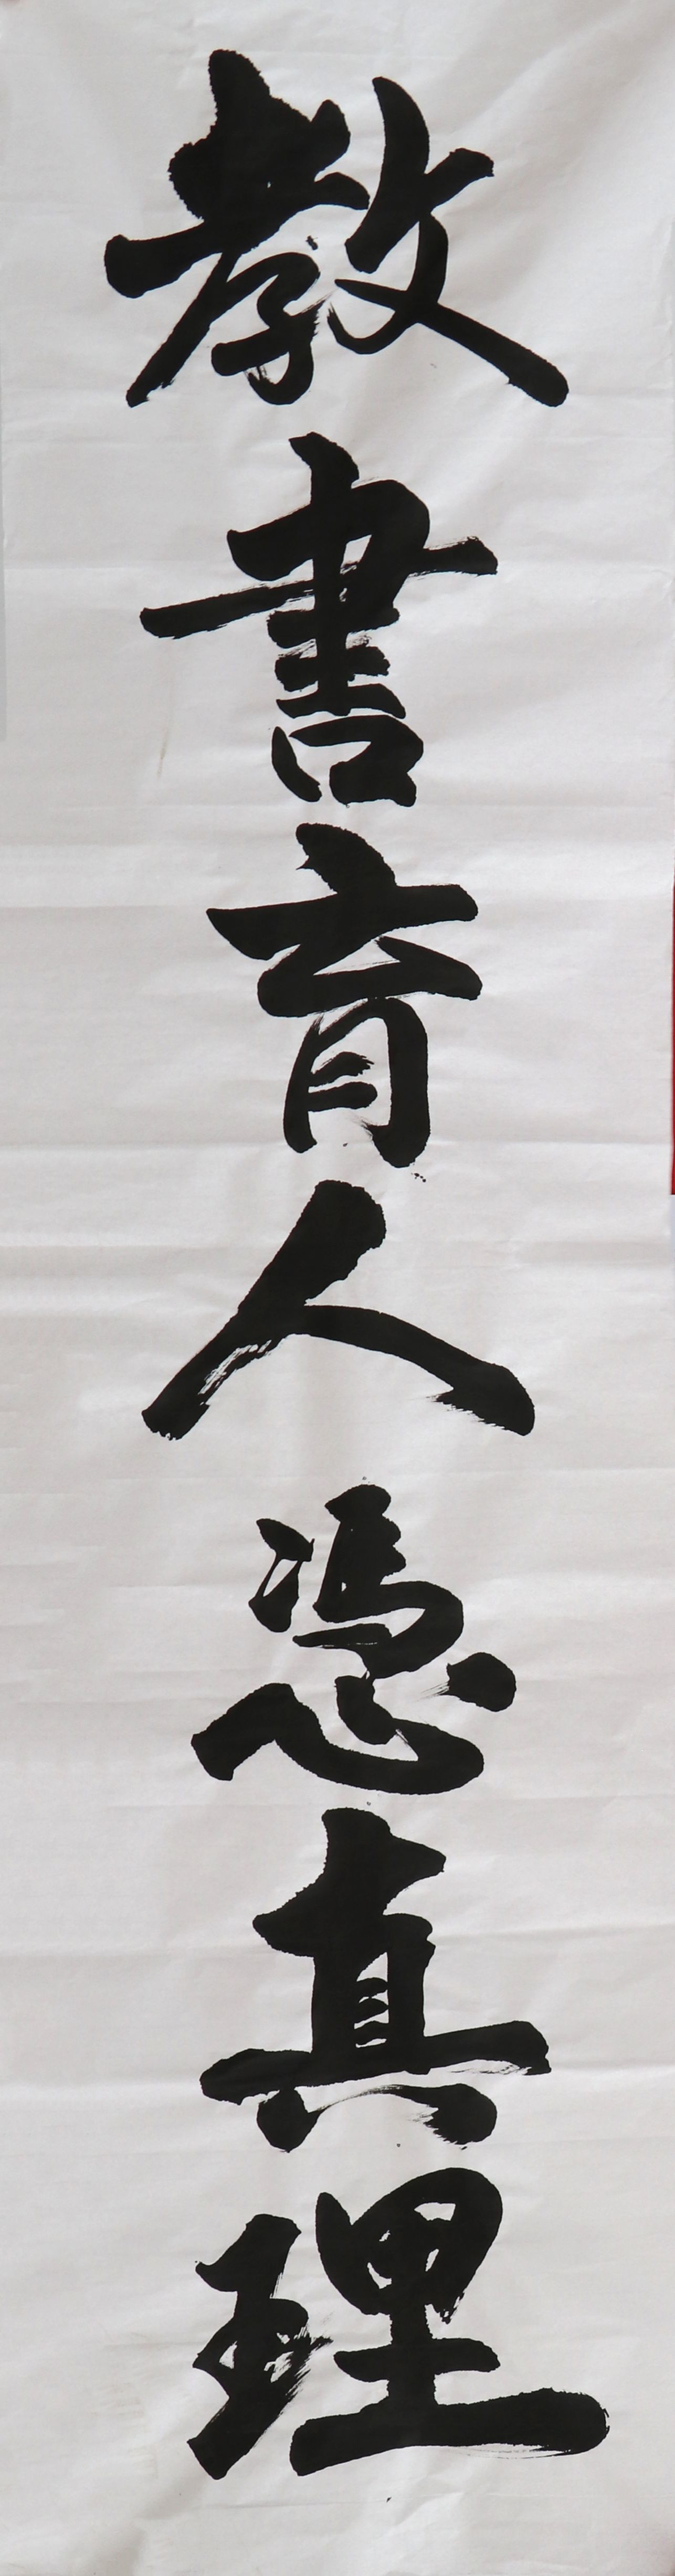 教書育人憑真理